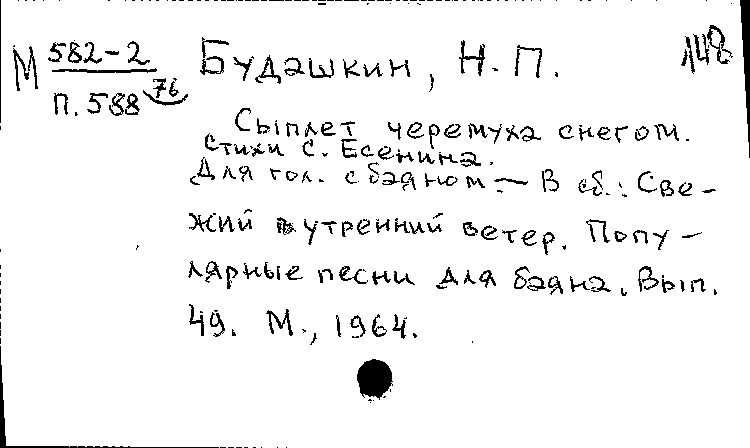 М 582-2 Будашкин, Н. П. 148
П. 588 76
Сыплет черемуха снегом.
стихи С. Есенина.
Для гол. с баяном. — В сб.: Све-
жий утренний ветер. Попу-
лярные песни для баяна. Вып.
49. М., 1964.